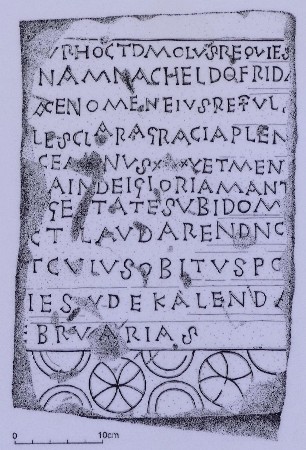 VRHOCTDMOLVSREQVIES
NAMNACHELDOFRID
ACENOMENEIVSREFVL
LESCLARAGRACIAPLEN
AINDEIGLORIAMANT
GETATESUBIDOM
CTLAVDARENDNC
TCVLVSOBITVSPC
IESVDEKALENDA
EBRVARIAS
0 10cm